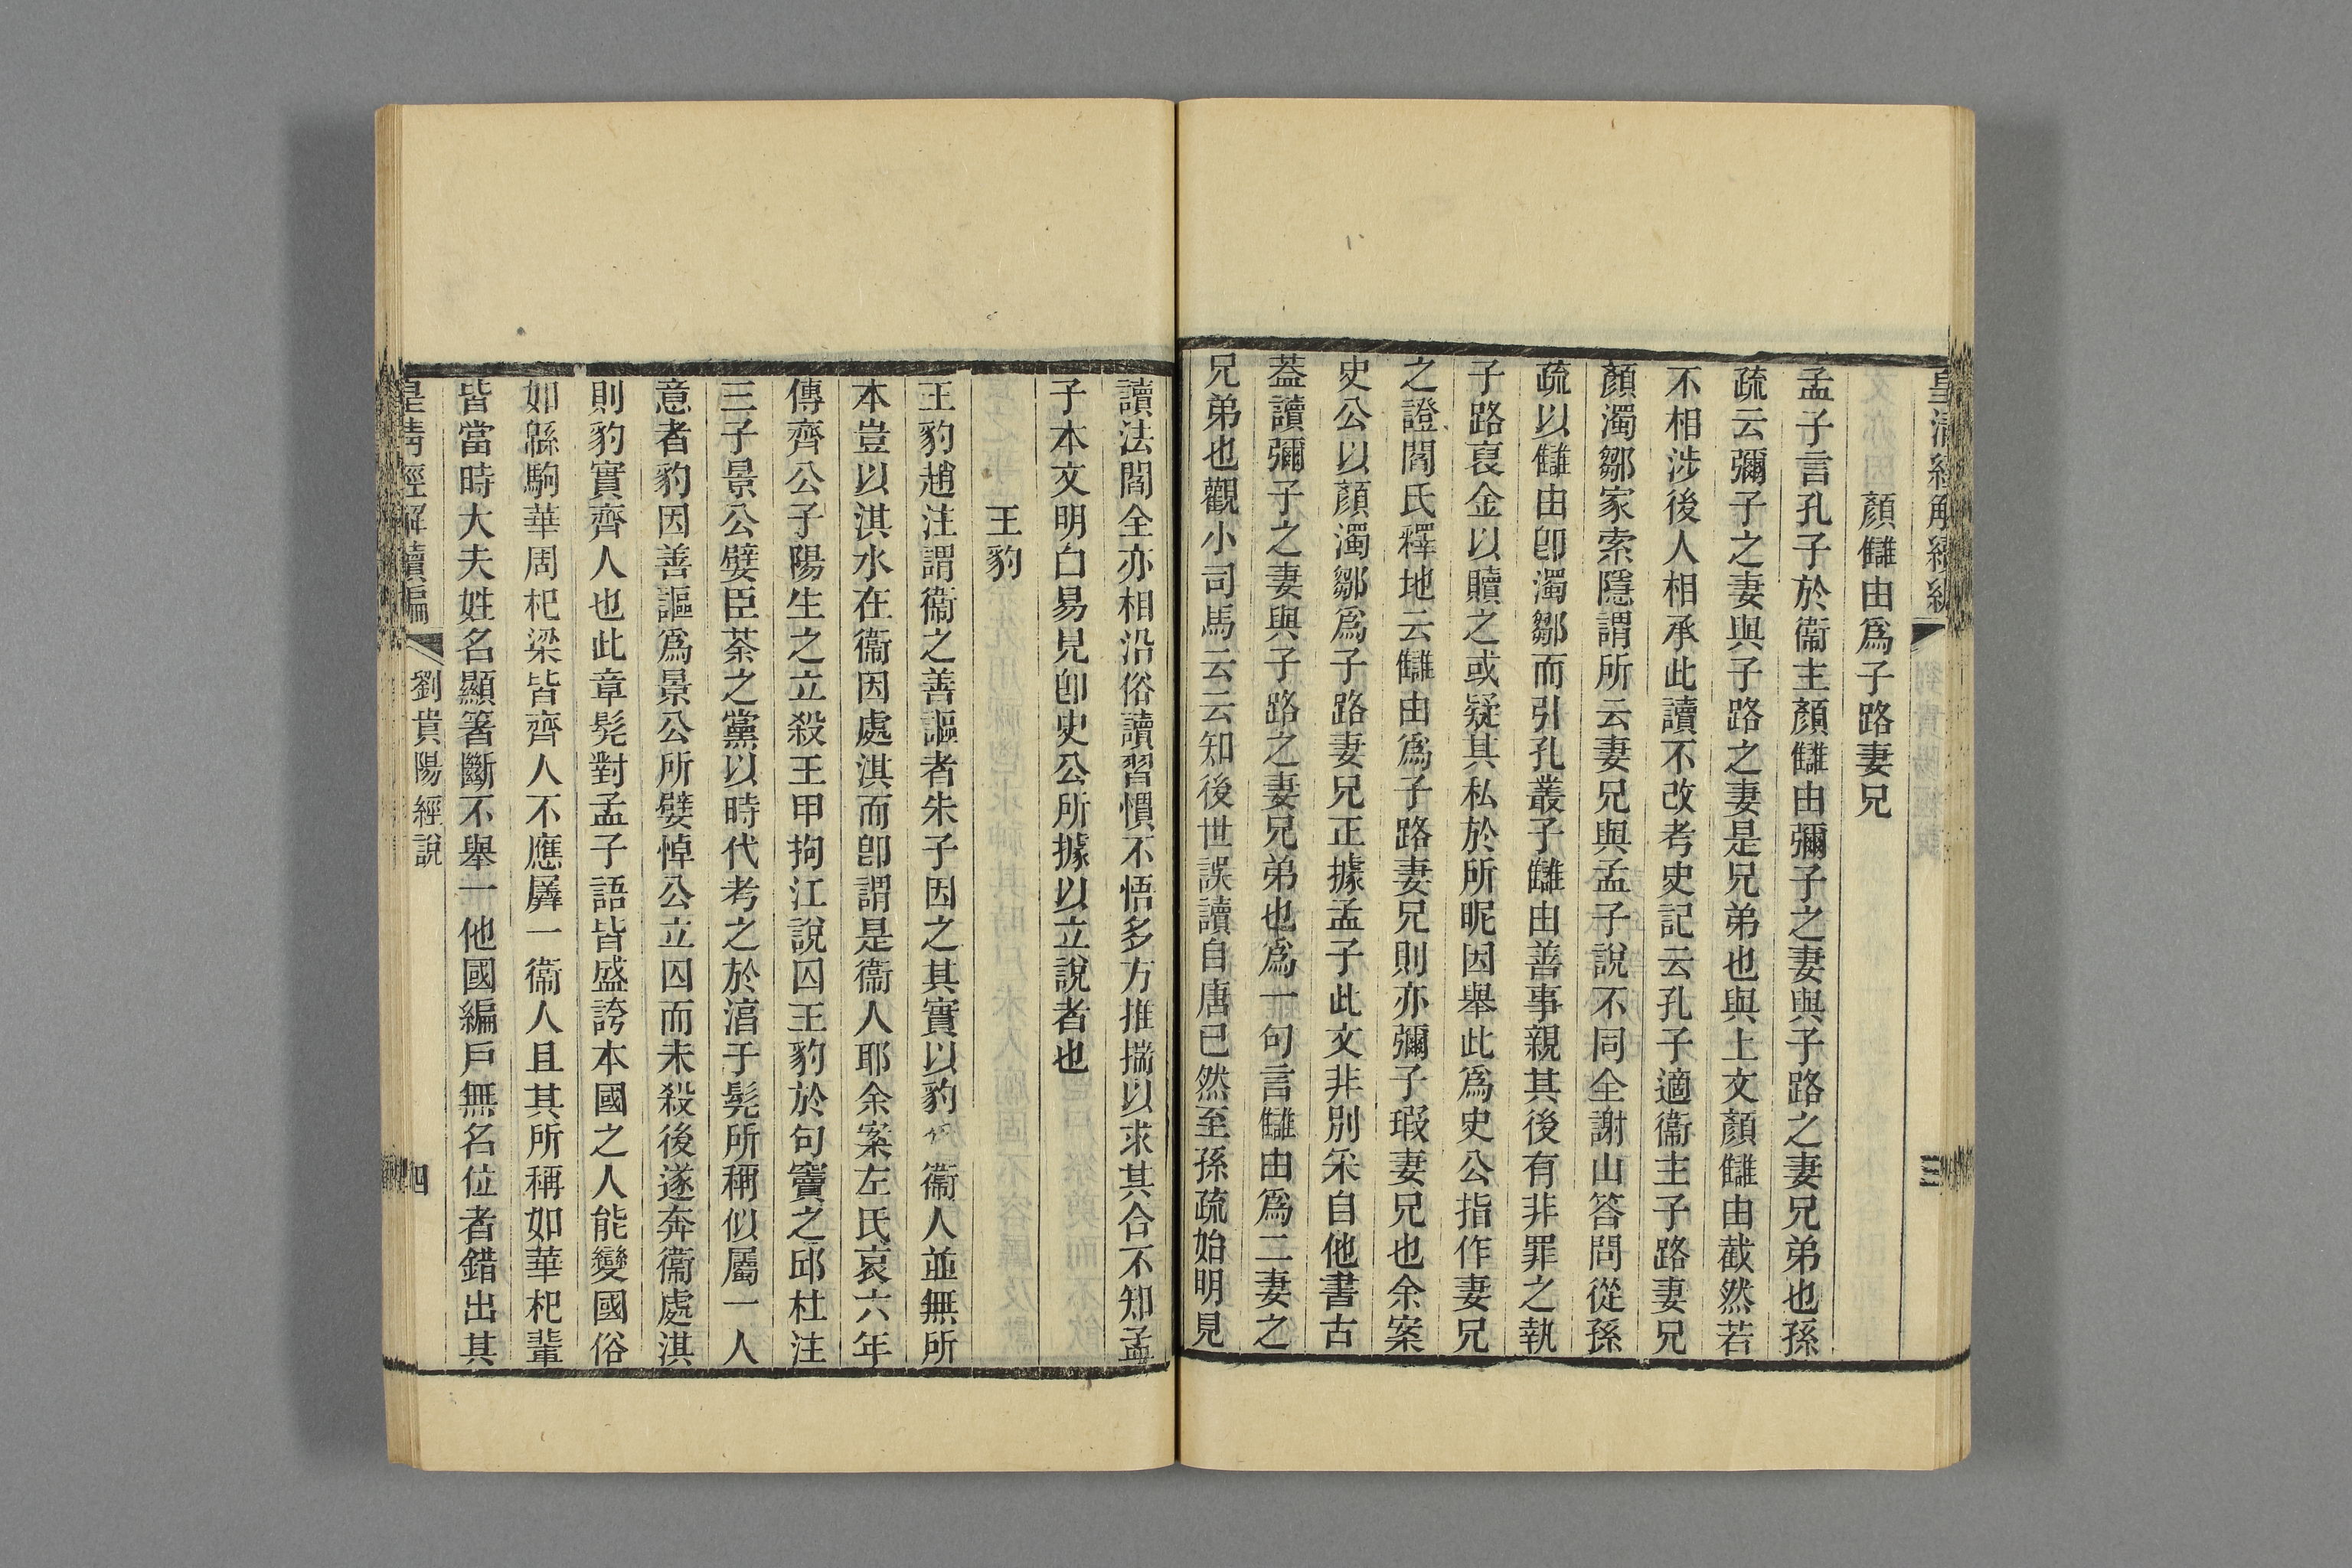 皇清經解續編
三
顏讎由爲子路妻兄
孟子言孔子於衞主顏讎由彌子之妻與子路之妻兄弟也孫
疏云彌子之妻與子路之妻是兄弟也與上文顏讎由截然若
不相涉後人相承此讀不改考史記云孔子適衞主子路妻兄
顏濁鄒家索隱謂所云妻兄與孟子說不同全謝山答問從孫
疏以讎由卽濁鄒而引孔叢子讎由善事親其後有非罪之執
子路裒金以贖之或疑其私於所昵因舉此爲史公指作妻兄
之證閻氏釋地云讎由爲子路妻兄則亦彌子瑕妻兄也余案
史公以顏濁鄒爲子路妻兄正據孟子此文非別采自他書古
蓋讀彌子之妻與子路之妻兄弟也爲一句言讎由爲二妻之
兄弟也觀小司馬云云知後世誤讀自唐已然至孫疏始明見
讀法閻全亦相沿俗讀習慣不悟多方推揣以求其合不知孟
子本文明白易見卽史公所據以立說者也
王豹
王豹趙注謂衞之善謳者朱子因之其實以豹衞人並無所
本豈以淇水在衞因處淇而卽謂是衞人耶余案左氏哀六年
傳齊公子陽生之立殺王甲拘江說囚王豹於句竇之邱杜注
三子景公嬖臣荼之黨以時代考之於湻于髡所稱似屬一人
意者豹因善謳爲景公所嬖悼公立囚而未殺後遂奔衞處淇
則豹實齊人也此章髡對孟子語皆盛誇本國之人能變國俗
如緜駒華周杞梁皆齊人不應羼一衞人且其所稱如華杞輩
皆當時大夫姓名顯箸斷不舉一他國編戶無名位者錯出其
皇清經解續編
劉貴陽經說
四